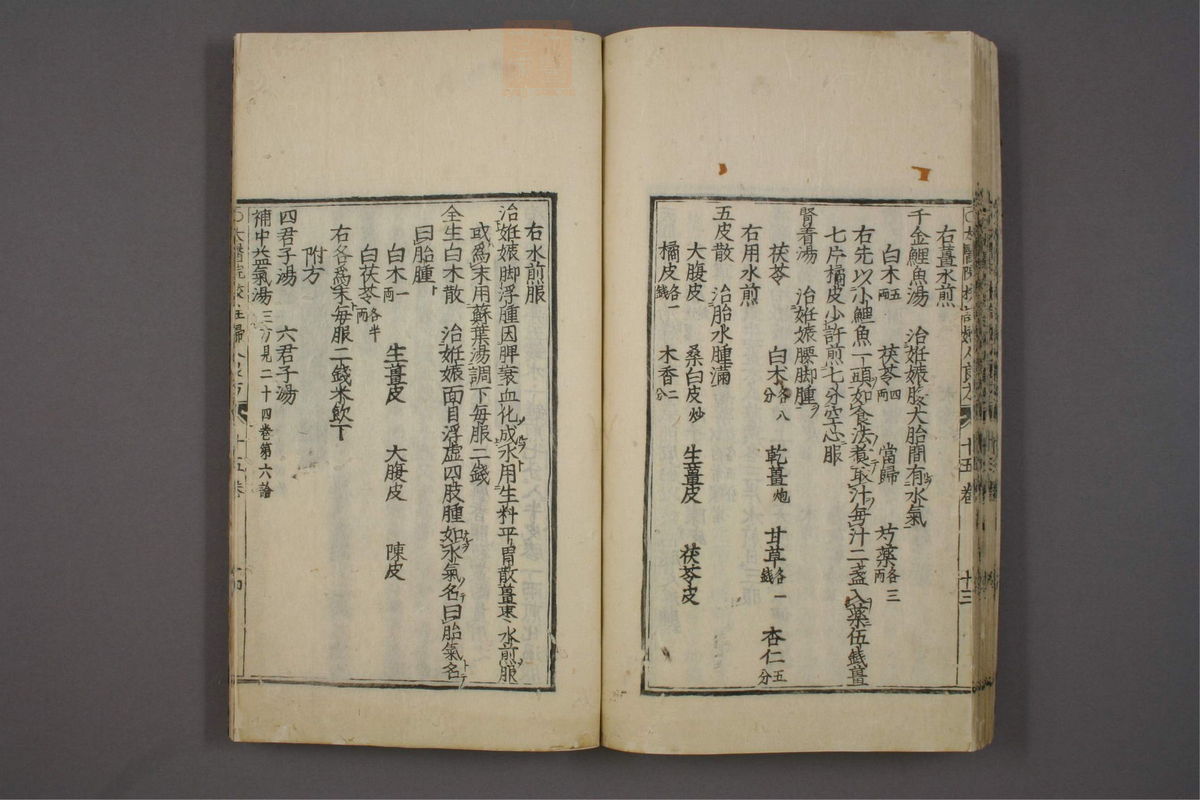 右薑水煎
千金鯉魚湯 治姙娠腹大胎間有水氣
白朮五兩 茯苓四兩 當歸 芍藥各三兩
右先以小鯉魚一頭如食法煮取汁每汁二盞入藥伍錢薑
七片橘皮少許煎七分空心服
腎着湯 治姙娠腰脚腫
茯苓 白朮各八分 乾薑炮 甘草各一錢 杏仁五分
右用水煎
五皮散 治胎水腫滿
大腹皮 桑白皮炒 生薑皮 茯苓皮
橘皮各一錢 木香二分
十五卷 十三
右水煎服
治姙娠脚浮腫因脾衰血化成水用生料平胃散薑棗水煎服
或爲末用蘇葉湯調下每服二錢
全生白朮散 治姙娠面目浮虛四肢腫如水氣名曰胎氣名
曰胎腫
白朮一兩 生薑皮 大腹皮 陳皮
白茯苓各半兩
右各爲末每服二錢米飲下
附方
四君子湯 六君子湯
補中益氣湯三方見二十四卷第六論